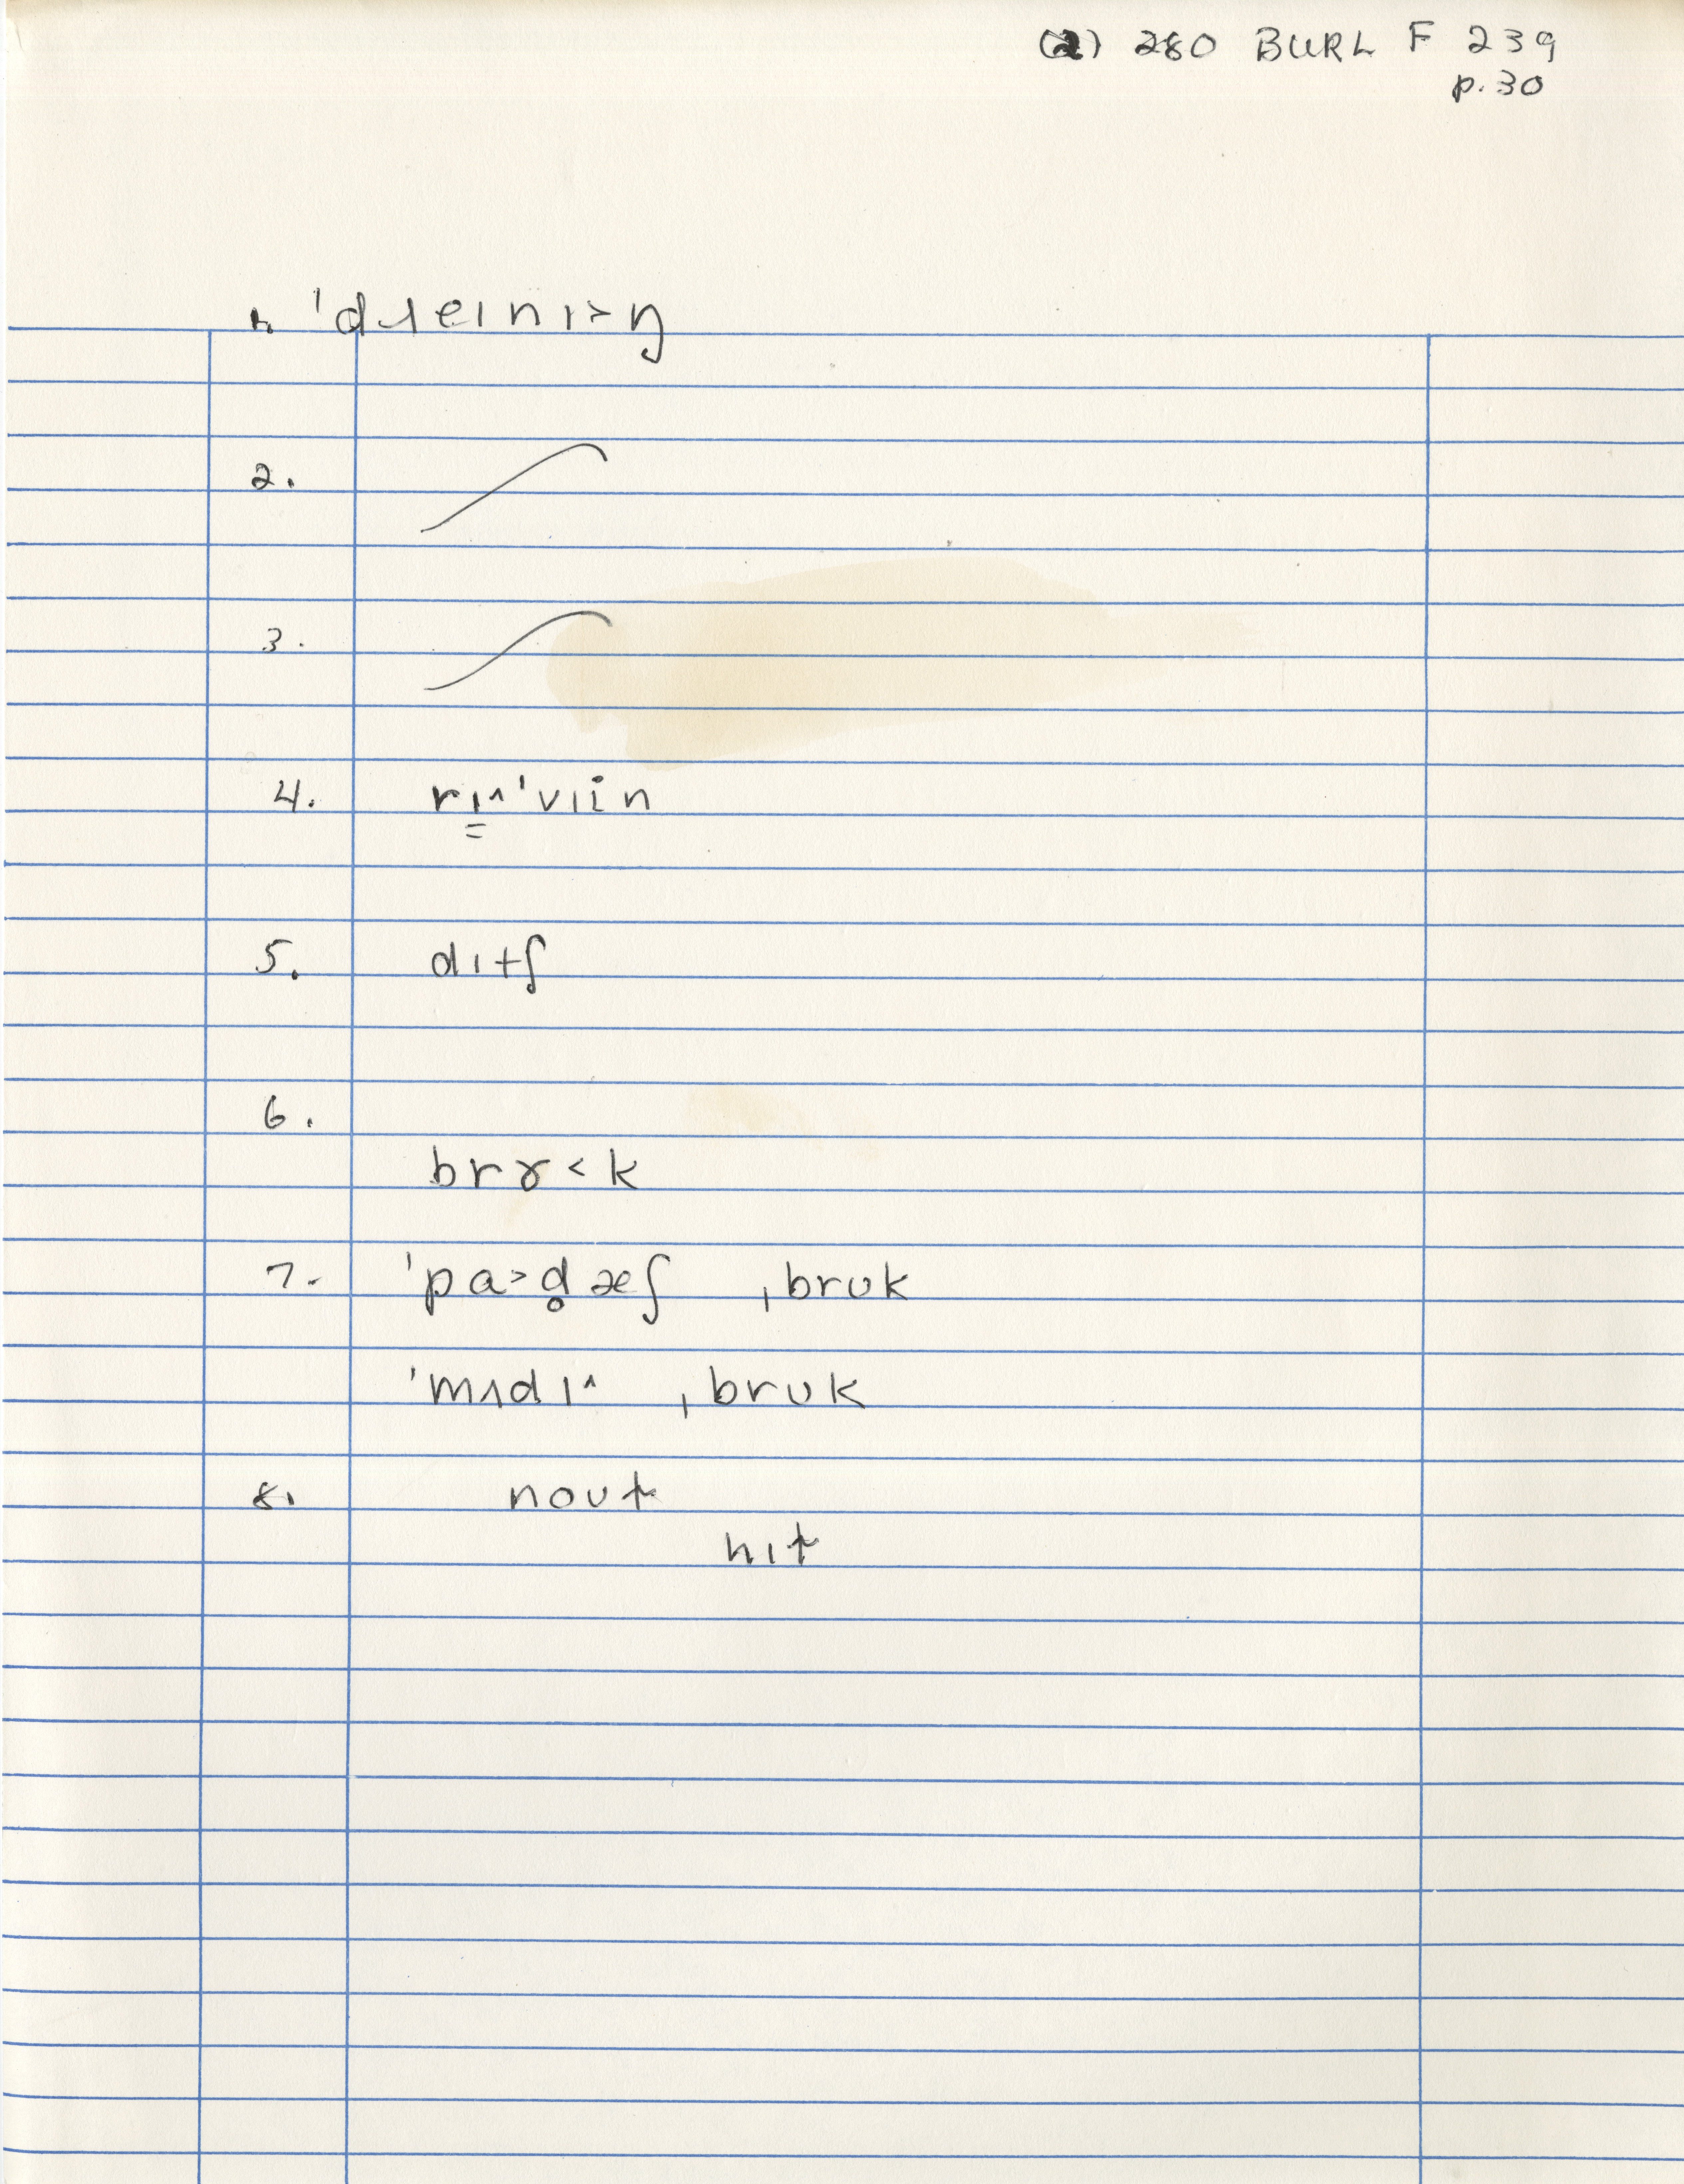 (2) 280 BURL F 239
p. 30
1. ˈdɹeɪnɪ>ŋ
2.
3.
4. rɪ̳^ˈvɪin
5. dɪtʃ
6.
brɤ<k
7. ˈpa>d̥æʃ ˌbrʊk
ˈmʌdɪ^ ˌbrʊk
8. noʊt
hɪt